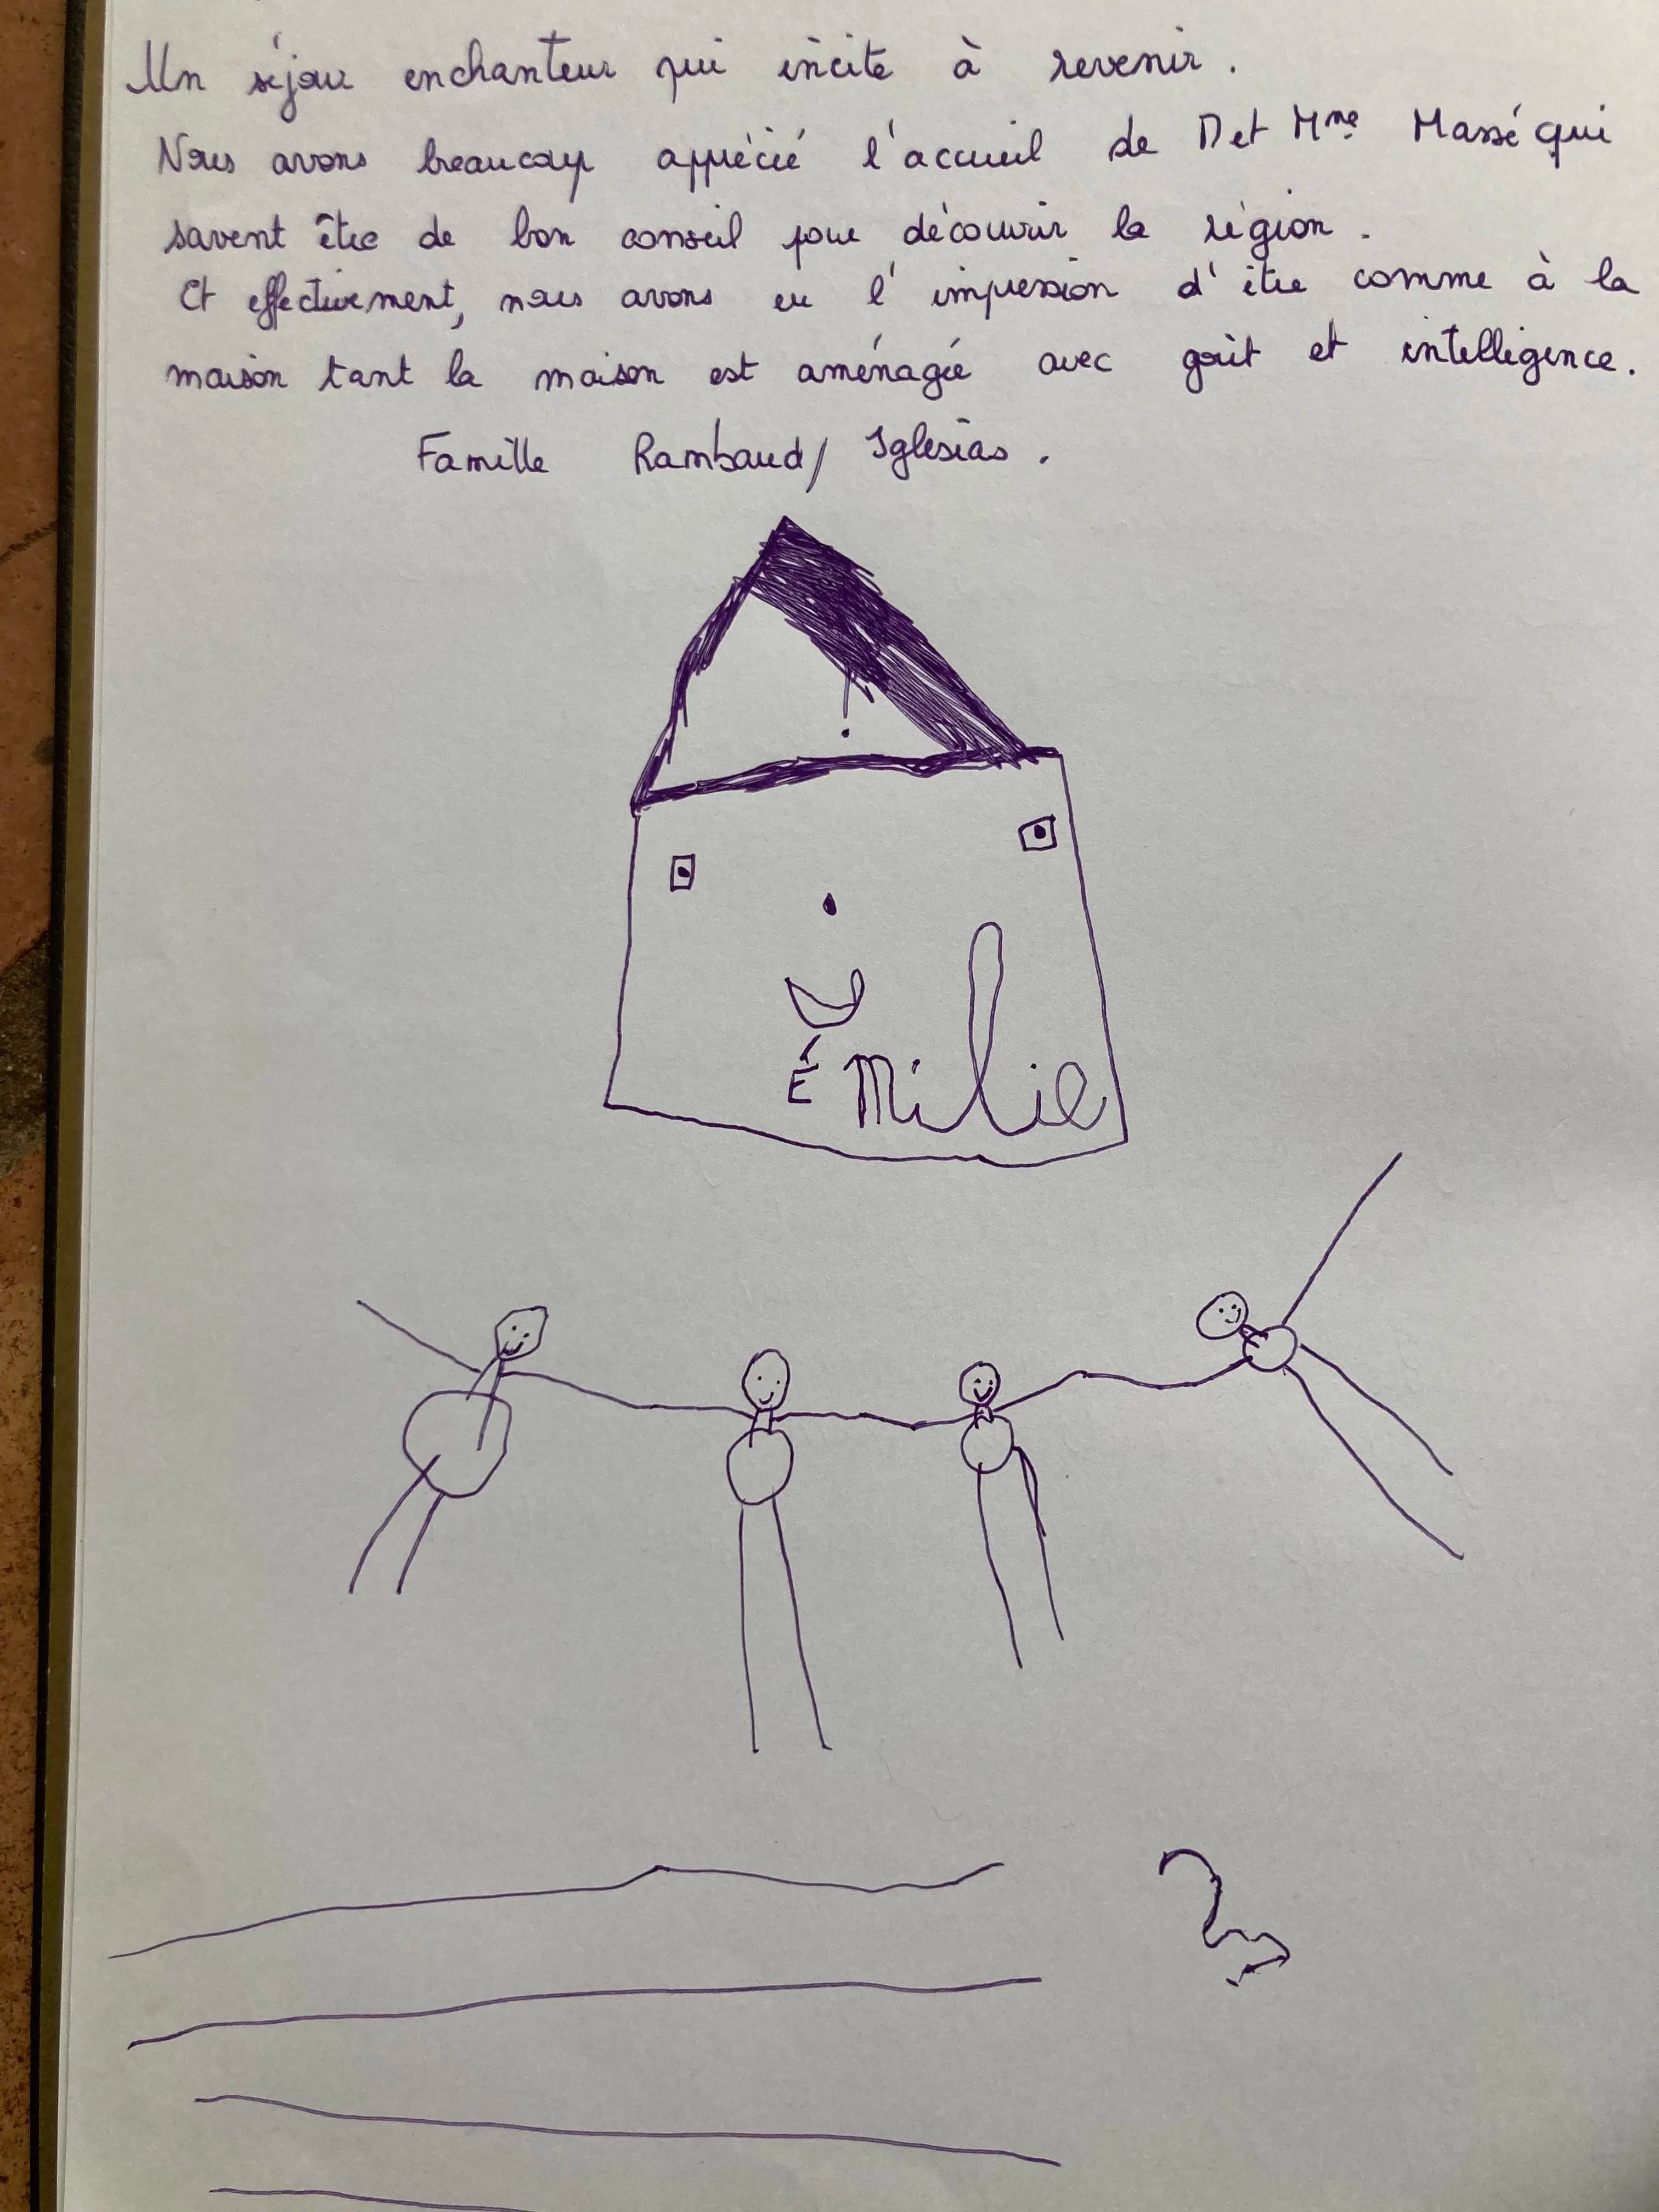 Un séjour enchanteur qui incite à revenir.
Nous avons beaucoup apprécié l'accueil de M et Mme Massé qui
savent être de bon conseil pour découvrir la région.
Et effectivement, nous avons eu l'impression d'être comme à la
maison tant la maison est aménagée avec goût et intelligence.
Famille Rambaud/ Iglesias.
Émilie